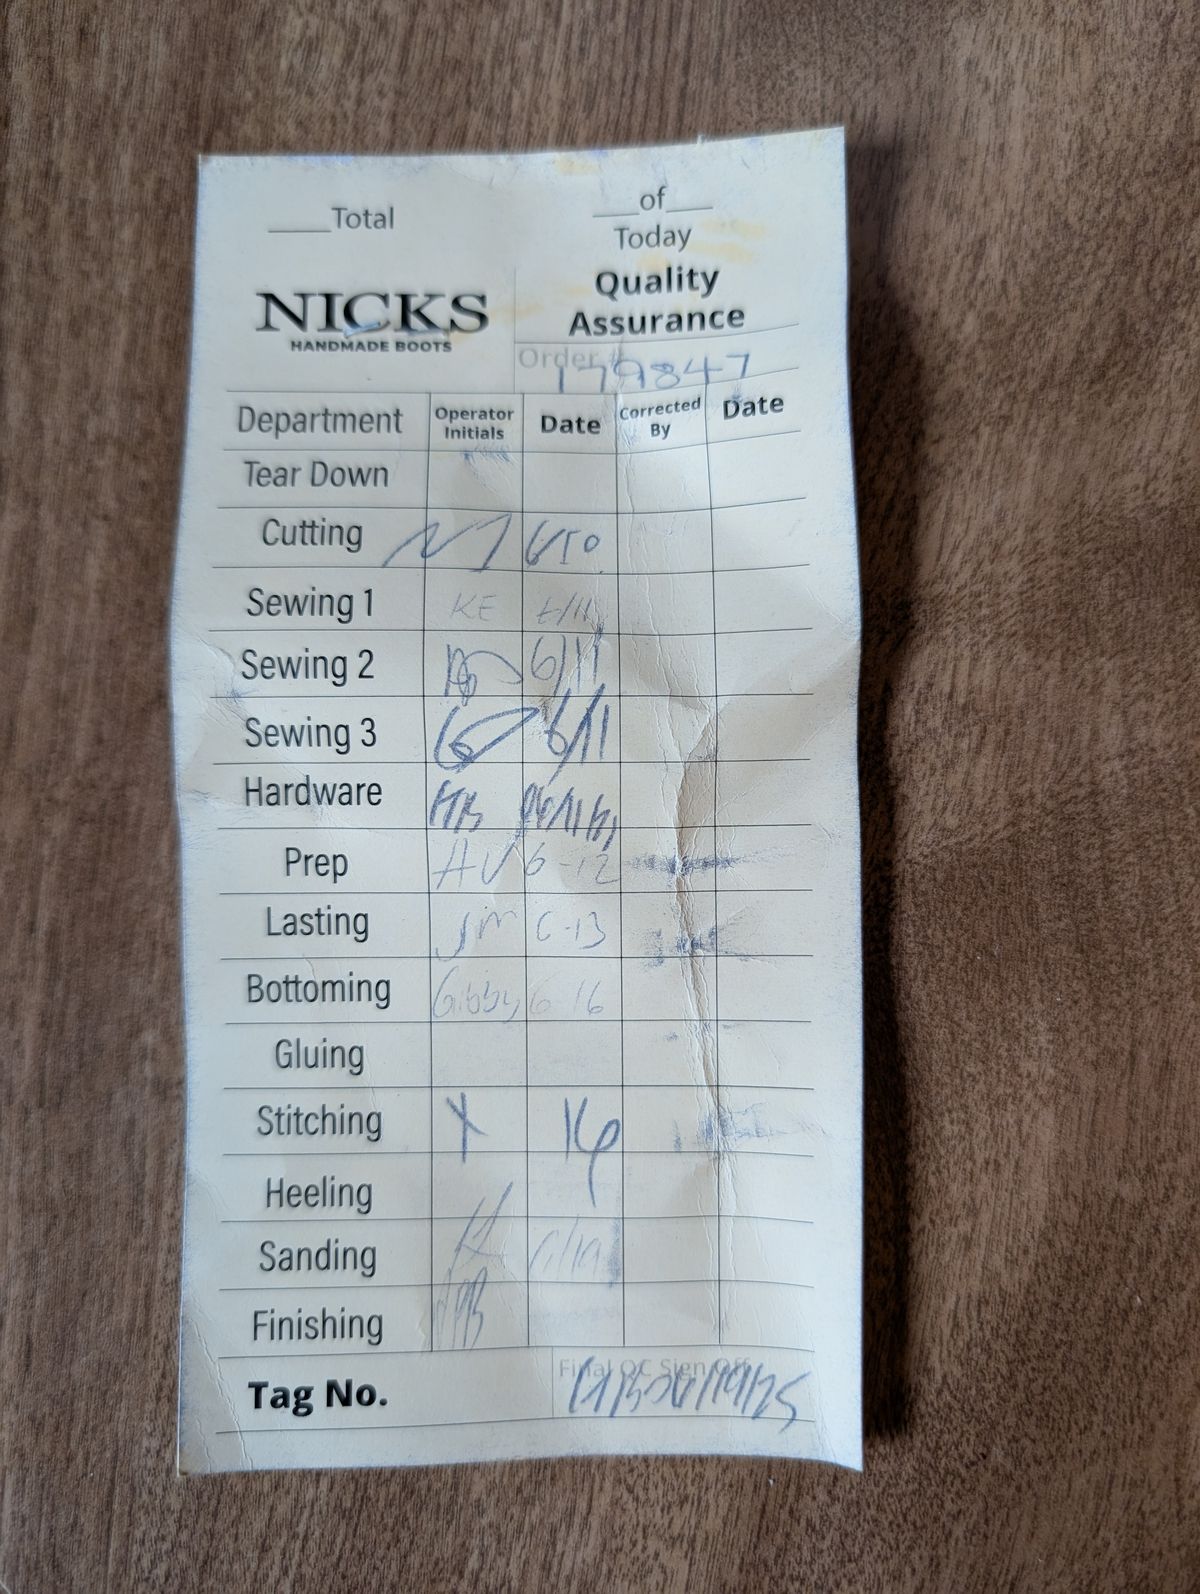 ___Total
___of___
Today
NICKS
HANDMADE BOOTS
Quality
Assurance
Order #
179847
Department Operator Initials Date Corrected By Date
Tear Down
Cutting
Sewing 1 KE 6/11
Sewing 2 6/11
Sewing 3 6/11
Hardware HB
Prep AV 6-12
Lasting JM 6-13
Bottoming Gibby 6 16
Gluing
Stitching 16
Heeling
Sanding
Finishing
Tag No. Final QC Sign Off